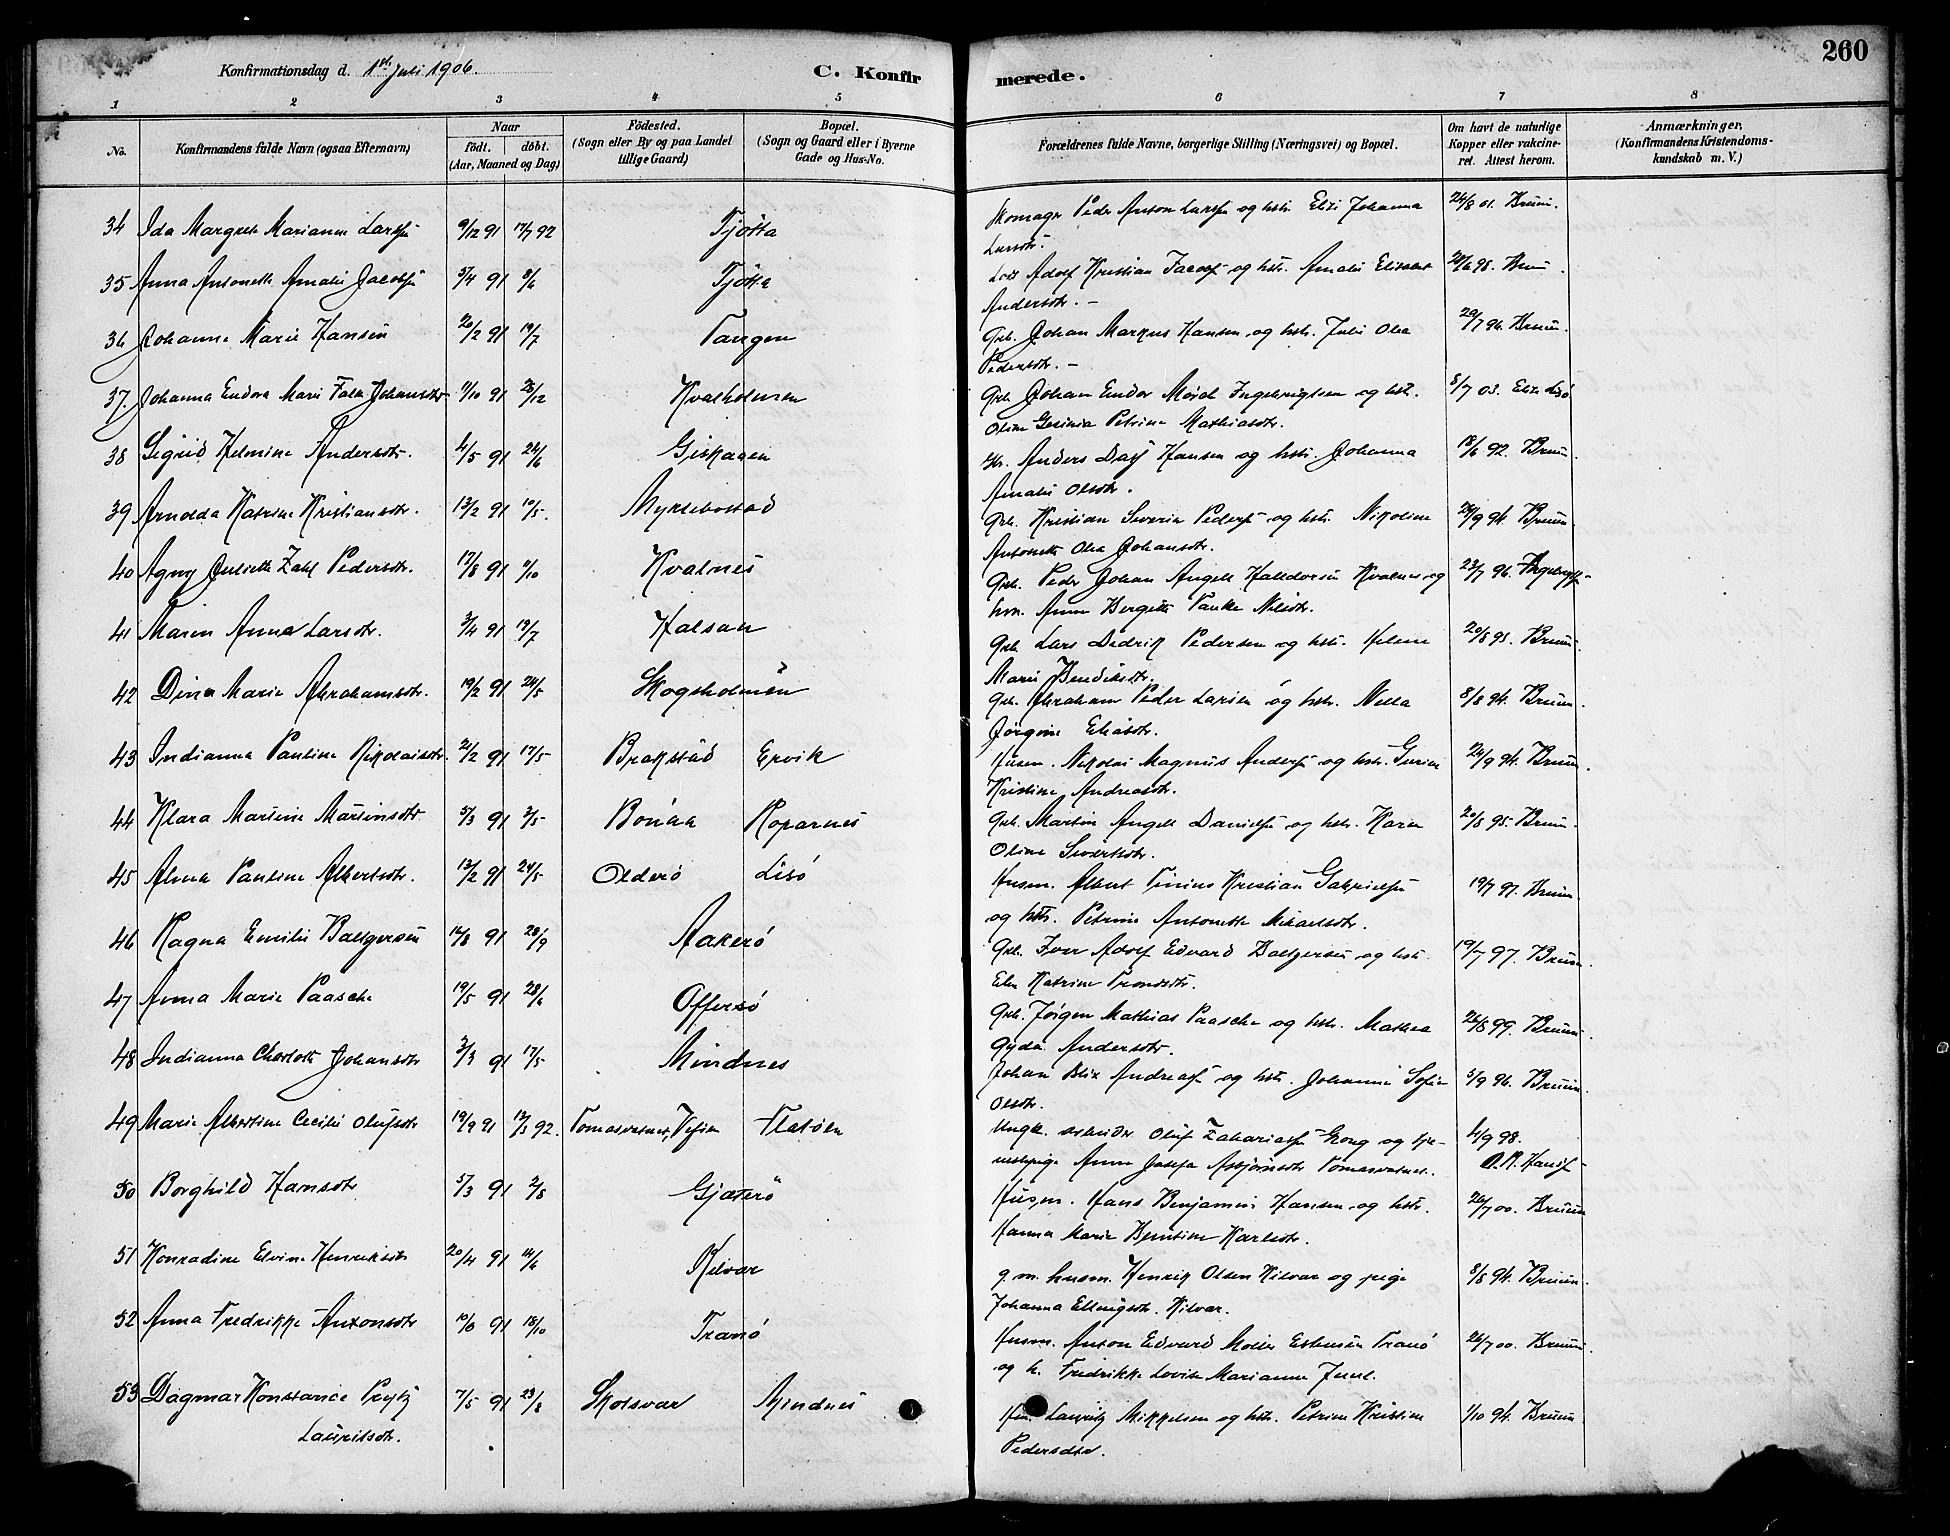 260
Konfirmationsdag d. 1ste Juli 1906.
C. Konfirmerede.
1 2 3 4 5 6 7 8
No.
Konfirmandens fulde Navn (ogsaa Efternavn)
Naar
födt. döbt.
(Aar, Maaned og Dag)
Födested.
(Sogn eller By og paa Landet
tillige Gaard)
Bopæl.
(Sogn og Gaard eller i Byerne
Gade og Hus-No.
Forældrenes fulde Navne, borgerlige Stilling (Næringsvei) og Bopæl.
Om havt de naturlige
Kopper eller vakcine-
ret. Attest herom.
Anmærkninger,
(Konfirmandens Kristendoms-
kundskab m. V.)
34 Ida Margrete Marianne Larsen 9/12 91 17/7 92 Tjötta Skomager Peder Anton Larsen og hstr. Elzi Johanna 24/8 01. Bruun.
Larsdtr.
35 Anna Antonette Amalie Jacobsen 5/4 91 8/6 Tjötta Adolf Kristian Jacobsen og hstr. Amalie Elisabet 20/6 98. Bruun.
Andersdtr. -
36 Johanne Marie Hansen 20/2 91 19/7 Tangen Grb. Johan Markus Hansen og hstr. Julie Olea 29/7 96. Bruun.
Pedersdtr. -
37. Johanna Endora Marie Falk Johansdtr. 11/10 91 28/12 Kvalholmen Grb. Johan Endor Mörch Ingebrigtsen og hst. 8/7 03. Elzi Lisö
Oline Gurinia Petrine Mathiasdtr.
38 Sigrid Helmine Andersdtr. 4/5 91 24/6 Giskagen Anders Dass Hansen og hstr. Johanna 18/6 92. Bruun
Amalie Olsdtr.
39 Arnolda Katrine Kristiansdtr. 13/2 91 10/5. Myklebostad Grb. Kristian Severin Pedersen og hstr. Nikoline 24/9 94. Bruun.
Antonette Olea Johansdtr.
40 Agny Juliette Zahl Pedersdtr. 17/8 91 11/10 Kvalnes Grb. Peder Johan Angell Halldorsen Kvalnes og 23/7 96.
hstr. Anne Bergitte Tanke Nilsdtr.
41 Maren Anna Larsdtr. 3/4 91 19/7 Halsan Grb. Lars Didrik Pedersen og hstr. Helene 20/8 95. Bruun.
Marie Bendiksdtr.
42 Dina Marie Abrahamsdtr. 19/2 91 24/5 Skogsholmen Grb. Abraham Peder Larsen og hstr. Nella 8/8 94. Bruun.
Jörgine Eliasdtr.
43 Indianna Pauline Nikolaisdtr. 21/2 91 17/5 Brakstad Ervik Husm. Nikolai Magnus Andersen og hstr. Gurine 24/9 94. Bruun.
Kristine Andreasdtr.
44 Klara Martine Martinsdtr 5/3 91 3/5 Bönaa Kopernes Grb. Martin Angell Danielsen og hstr. Karen 20/8 95. Bruun.
Oline Sivertsdtr.
45 Alma Pauline Albertsdtr. 13/2 91 24/5 Olderö Lisö Husm. Albert Tinius Kristian Gabrielsen 19/7 97. Bruun
og hstr. Petrine Antonette Mikaelsdtr.
46 Ragna Emilie Baltzersen 14/8 91 20/9 Aakerö Grb. Iver Adolf Edvard Baltzersen og hstr. 19/7 97. Bruun.
Elen Katrine Trondsdtr.
47 Anna Marie Paasche 19/5 91 28/6 Offersö Grb. Jörgen Mathias Paasche og hstr. Mathea 26/8 99. Bruun.
Gyda Andersdtr.
48 Indianna Charlotte Johansdtr 3/3 91 17/5 Mindnes Johan Blix Andreassen og hstr. Johanna Sofie 5/9 96. Bruun.
Olsdtr.
49 Marie Albertine Cecilie Olufsdtr 19/9 91 13/3 92. Tomasvatnet, Vefsen Flatöen Ungk. arbeider Oluf Zakariassen Grong og tje- 4/9 98.
nestepige Anne Josefa Asbjörnsdtr Tomasvatnet. O. R. Hansen
50 Borghild Hansdtr 5/3 91 2/8 Gjæterö Husm. Hans Benjamin Hansen og hstr. 26/7 00. Bruun
Hanna Marie Berntine Karlsdtr.
51 Konradine Elvine Henriksdtr 20/4 91 14/6 Kilvær g. m. husm. Henrik Olsen Kilvær og pige 8/8 94. Bruun.
Johanna Ellingsdtr. Kilvær.
52 Anna Fredrikke Antonsdtr 10/8 91 18/10 Tranö Husm. Anton Edvard Moller Esbensen Tranö 26/7 00. Bruun.
og h. Fredrikke Lovise Marianne Juul.
53 Dagmar Konstance Prytz 7/5 91 23/8 Skolsvær Mindnes Lauritz Mikkelsen og hstr. Petrine Kristine 1/10 94. Bruun
Lauritsdtr. Pedersdtr.